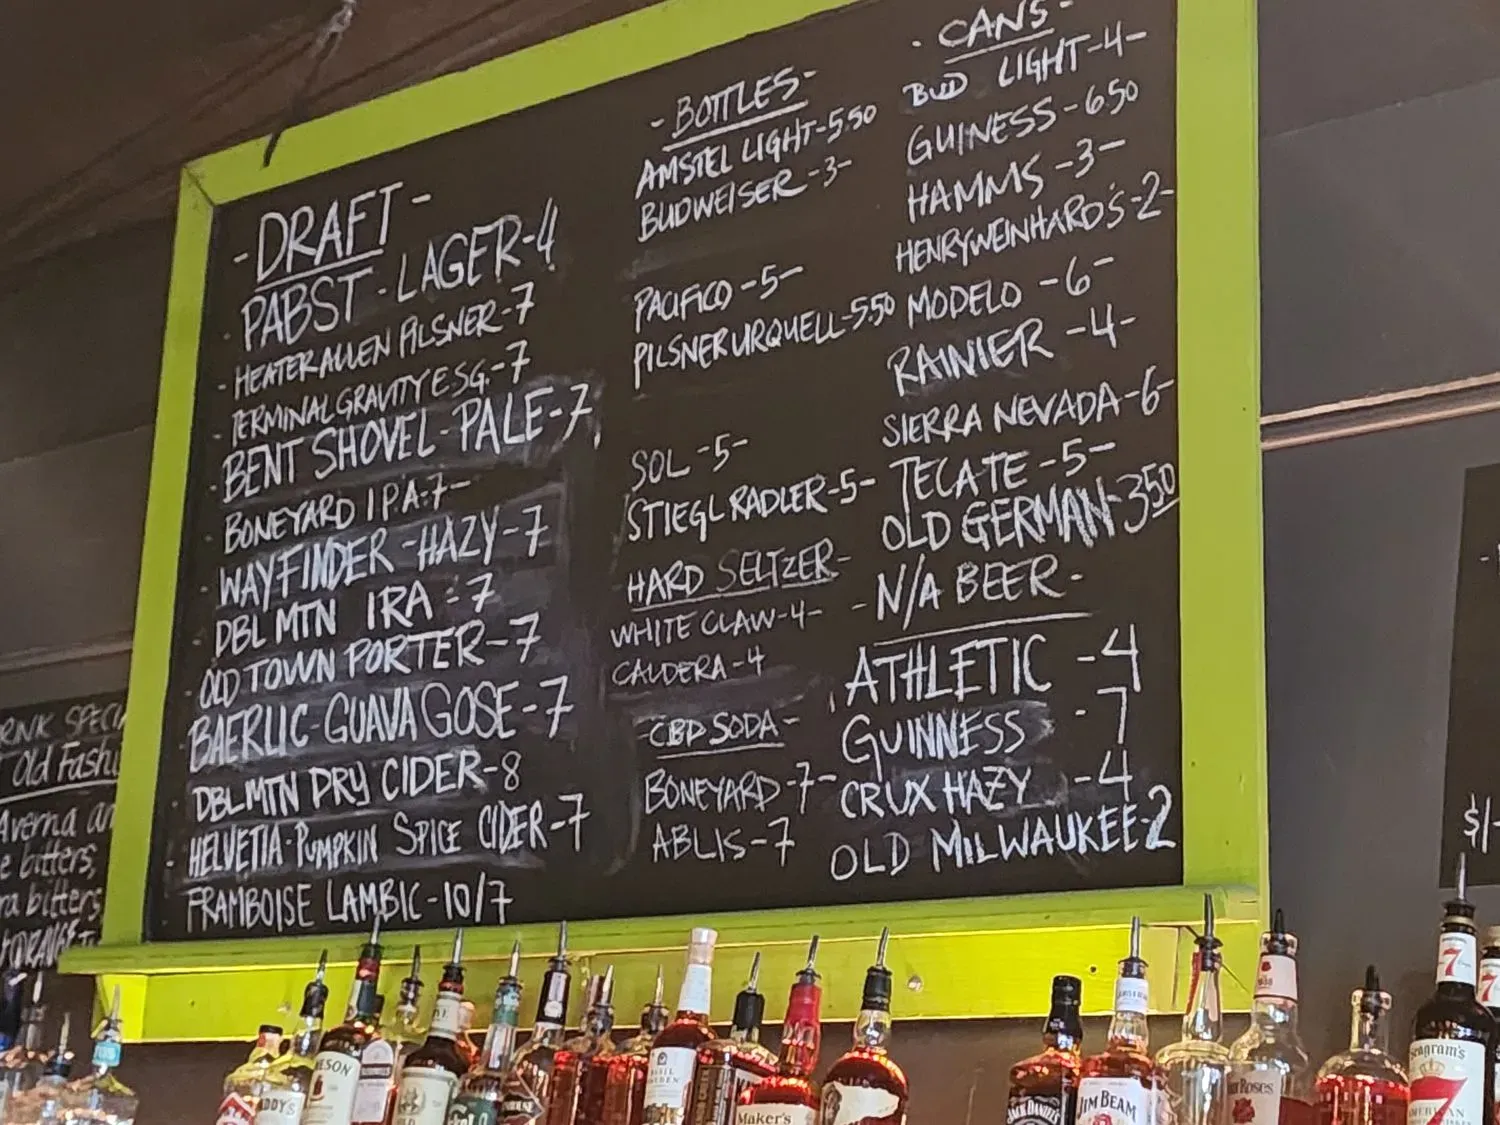 - DRAFT -
PABST - LAGER - 4
- HEATER ALLEN PILSNER - 7
- TERMINAL GRAVITY ESG. - 7
- BENT SHOVEL - PALE - 7
- BONEYARD IPA - 7 -
- WAYFINDER - HAZY - 7
- DBL MTN IRA - 7
- OLD TOWN PORTER - 7
- BAERLIC - GUAVA GOSE - 7
DBL MTN DRY CIDER - 8
- HELVETIA - PUMPKIN SPICE CIDER - 7
FRAMBOISE LAMBIC - 10/7
- BOTTLES -
AMSTEL LIGHT - 5.50
BUDWEISER - 3 -
PACIFICO - 5 -
PILSNER URQUELL - 5.50
SOL - 5 -
STIEGL RADLER - 5 -
HARD SELTZER -
WHITE CLAW - 4 -
CALDERA - 4
CBD SODA -
BONEYARD - 7 -
ABLIS - 7
- CANS -
BUD LIGHT - 4 -
GUINESS - 6.50
HAMMS - 3 -
HENRY WEINHARD'S - 2 -
MODELO - 6 -
RAINIER - 4 -
SIERRA NEVADA - 6 -
TECATE - 5 -
OLD GERMAN - 3 50
- N/A BEER -
ATHLETIC - 4
GUINNESS - 7
CRUX HAZY - 4
OLD MILWAUKEE - 2
Old Fash
Averna
bitters,
bitters,
$1
MESON
Maker's
JACK DANIEL'S
JIM BEAM
ROSES
Seagram's
7
7
7
AMERICAN